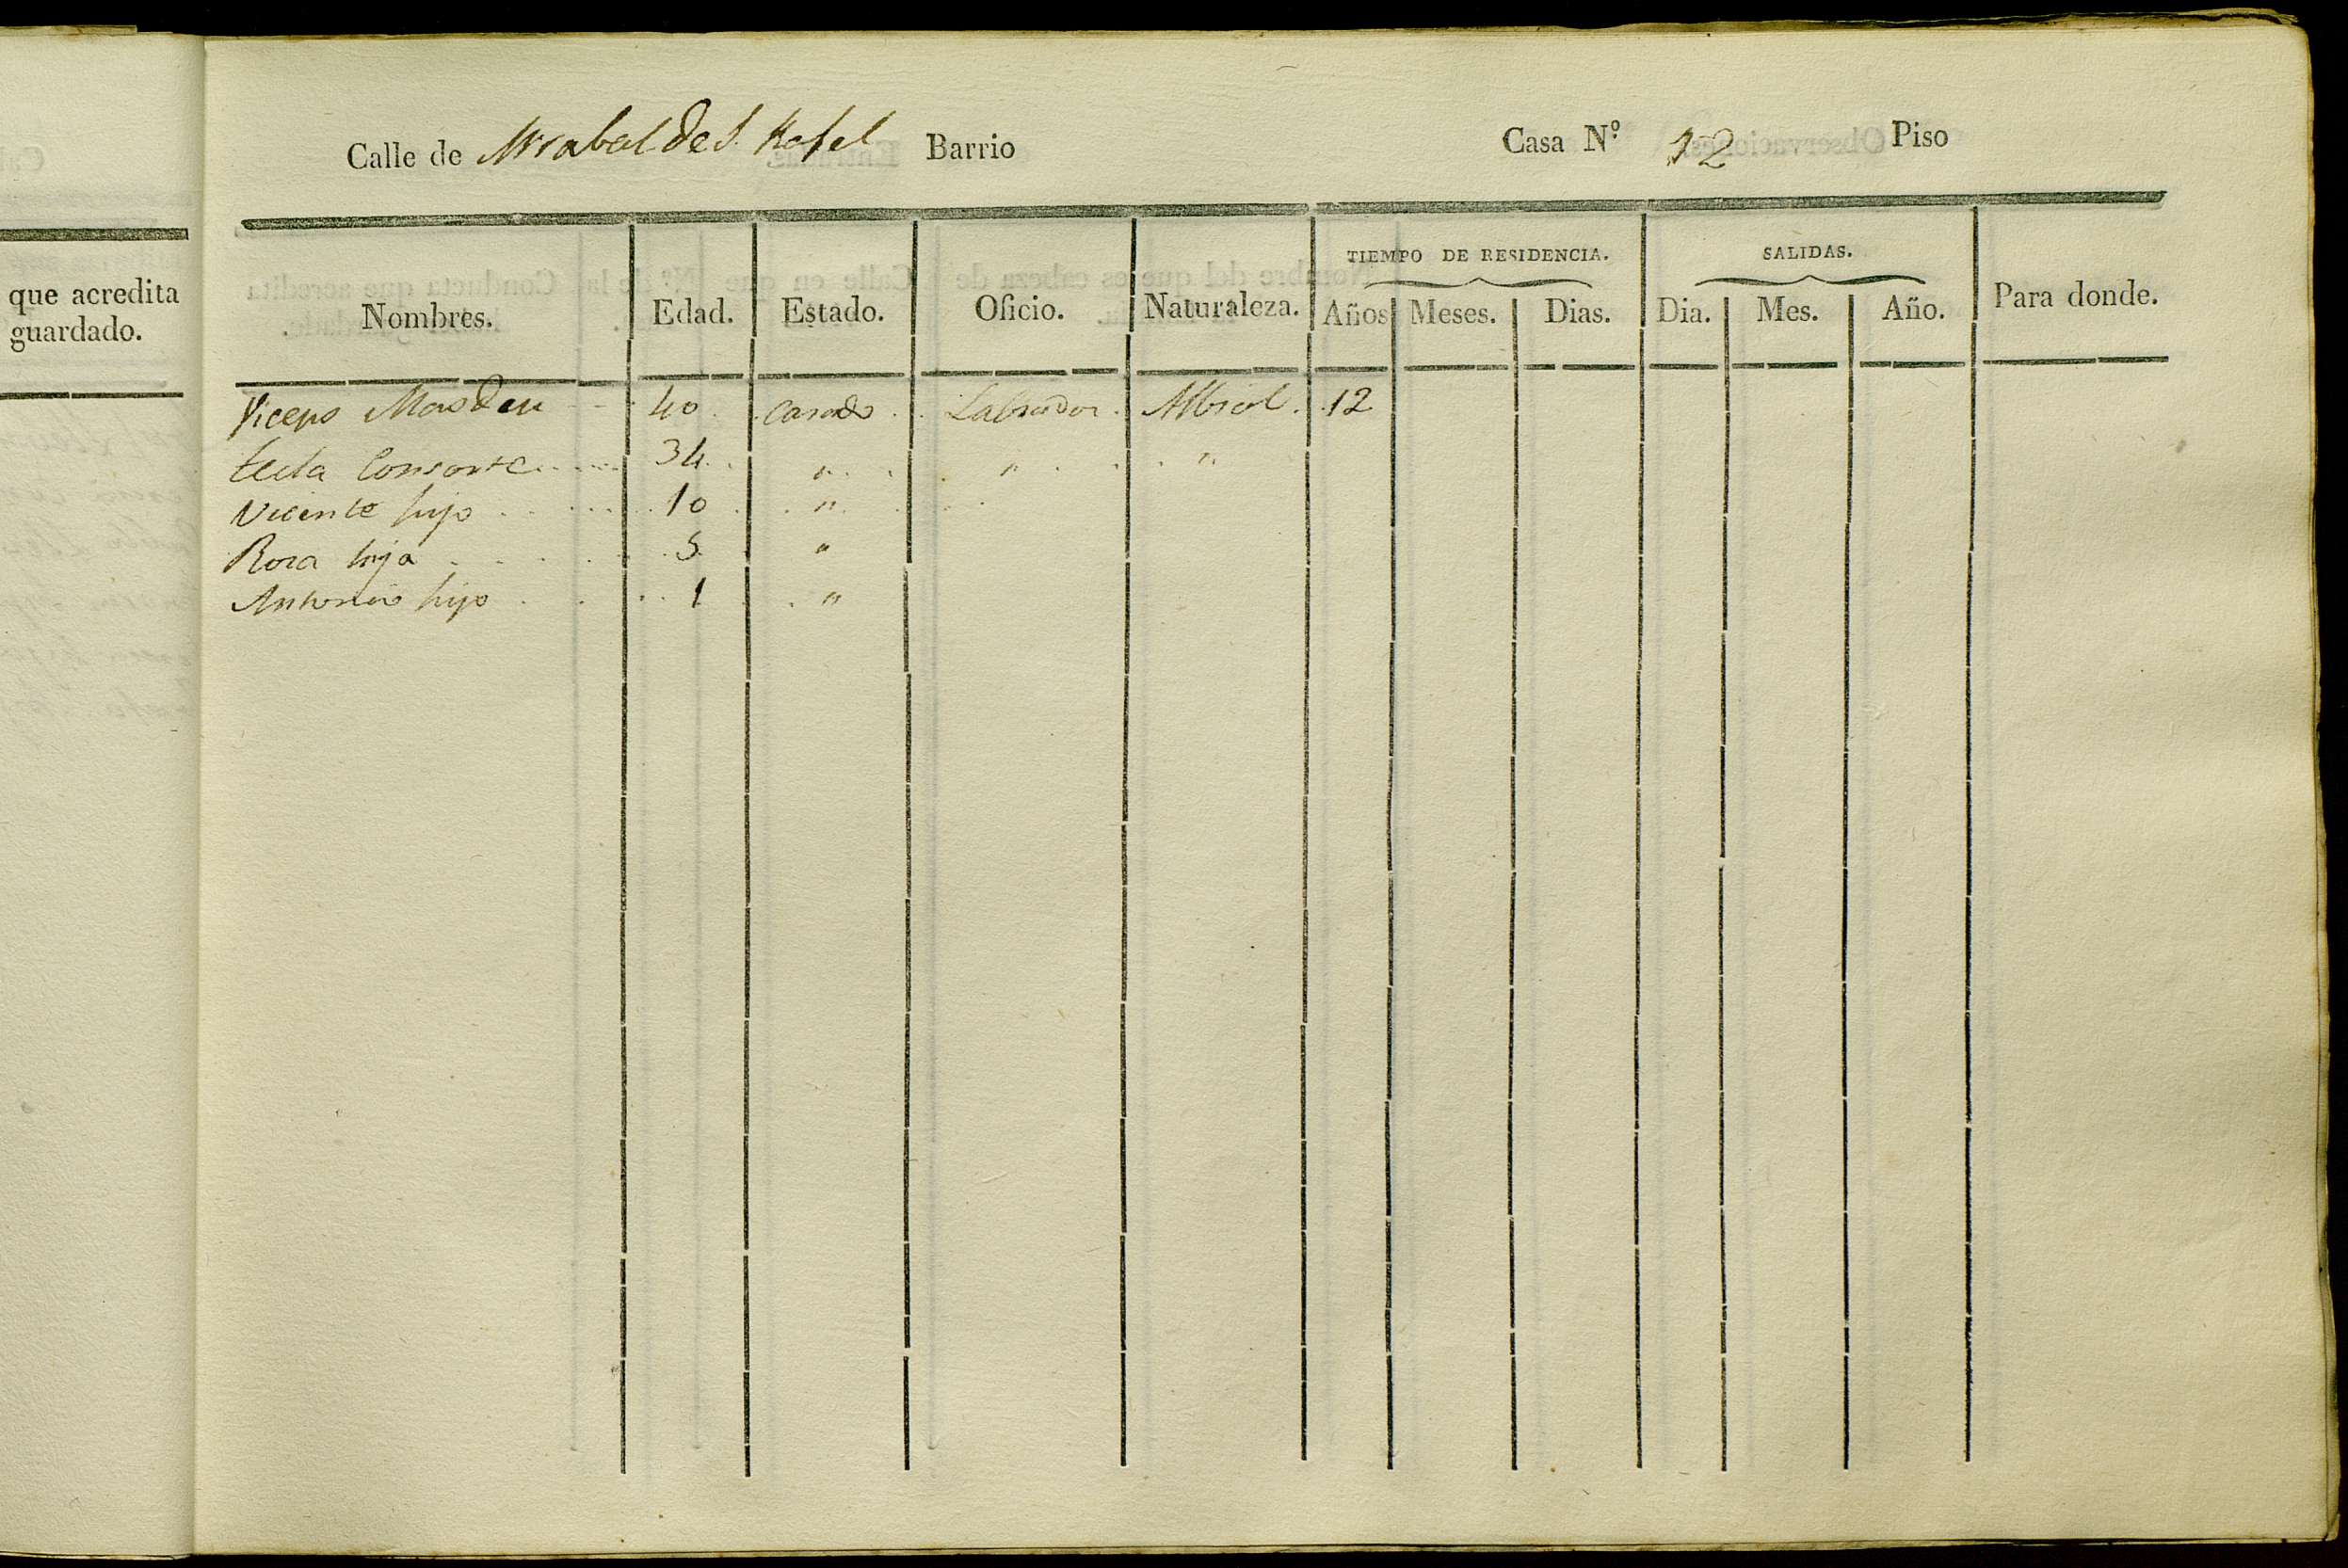 que acredita
guardado.
Calle de Arrabal de S. Rafel Barrio Casa N.º 12 Piso
TIEMPO DE RESIDENCIA. SALIDAS.
Nombres. Edad. Estado. Oficio. Naturaleza. Años Meses. Dias. Dia. Mes. Año. Para donde.
Masdeu 40 casado Labrador Albiol. 12
Tecla Consorte 34 " " "
Vicente hijo 10 "
Rosa hija 5 "
Antonio hijo 1 "